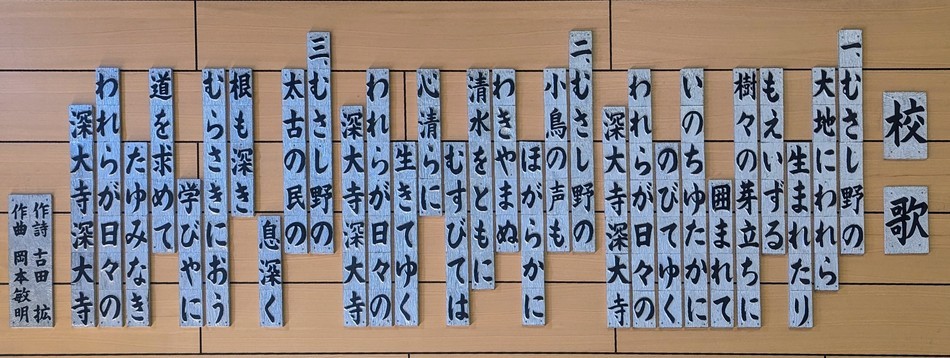 校歌
一、むさし野の
大地にわれら
生まれたり
もえいずる
樹々の芽立ちに
囲まれて
いのちゆたかに
のびてゆく
われらが日々の
深大寺深大寺
二、むさし野の
小鳥の声も
ほがらかに
わきやまぬ
清水をともに
むすびては
心清らに
生きてゆく
われらが日々の
深大寺深大寺
三、むさし野の
太古の民の
息深く
根も深き
むらさきにおう
学びやに
道を求めて
たゆみなき
われらが日々の
深大寺深大寺
作詩 古田 拡
作曲 岡本敏明